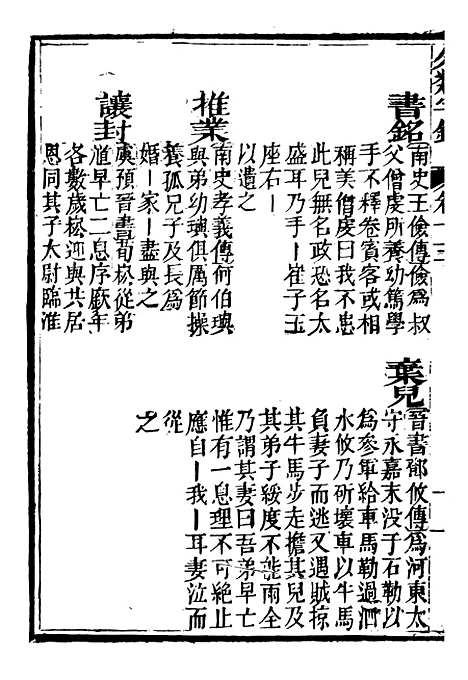 書銘
南史王儉傳儉爲叔
父僧虔所養幼篤學
手不釋卷賓客或相
稱美僧虔曰我不患
此兒無名政恐名太
盛耳乃手丨崔子玉
座右丨
以遺之
推業
南史孝義傳何伯璵
與弟幼璵俱厲節操
養孤兄子及長爲
婚丨家丨盡與之
讓封
虞預晉書荀崧從弟
馗早亡二息序廞年
各數歲崧迎與共居
恩同其子太尉臨淮
棄兒
晉書鄧攸傳爲河東太
守永嘉末没于石勒以
爲參軍給車馬勒過泗
水攸乃斫壞車以牛馬
負妻子而逃又遇賊掠
其牛馬步走擔其兒及
其弟子綏度不能兩全
乃謂其妻曰吾弟早亡
惟有一息理不可絶止
應自丨我丨耳妻泣而
從
之